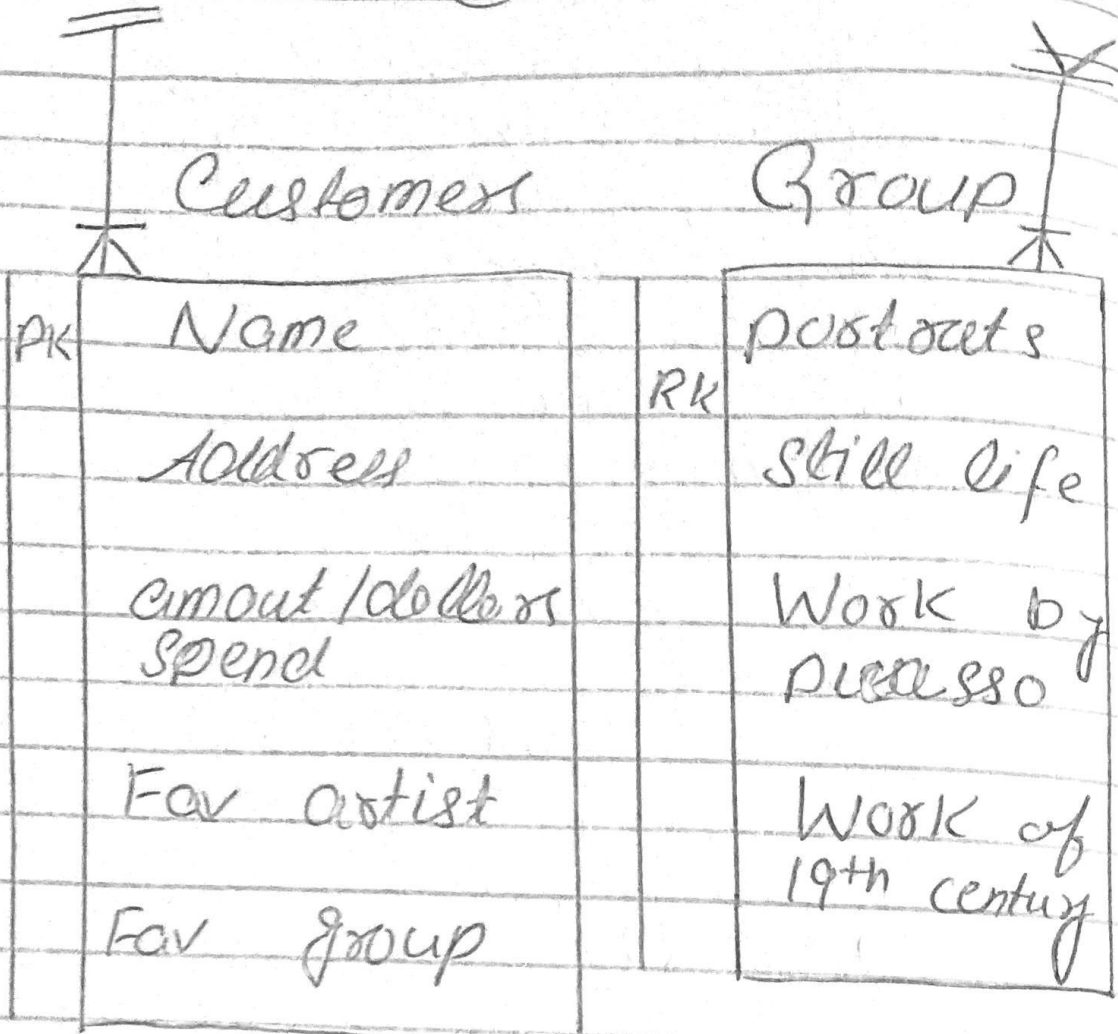 Customers
PK
Name
Address
amout/dollers
spend
Fav artist
Fav group
Group
RK
portraits
Still life
Work by
picasso
Work of
19th century